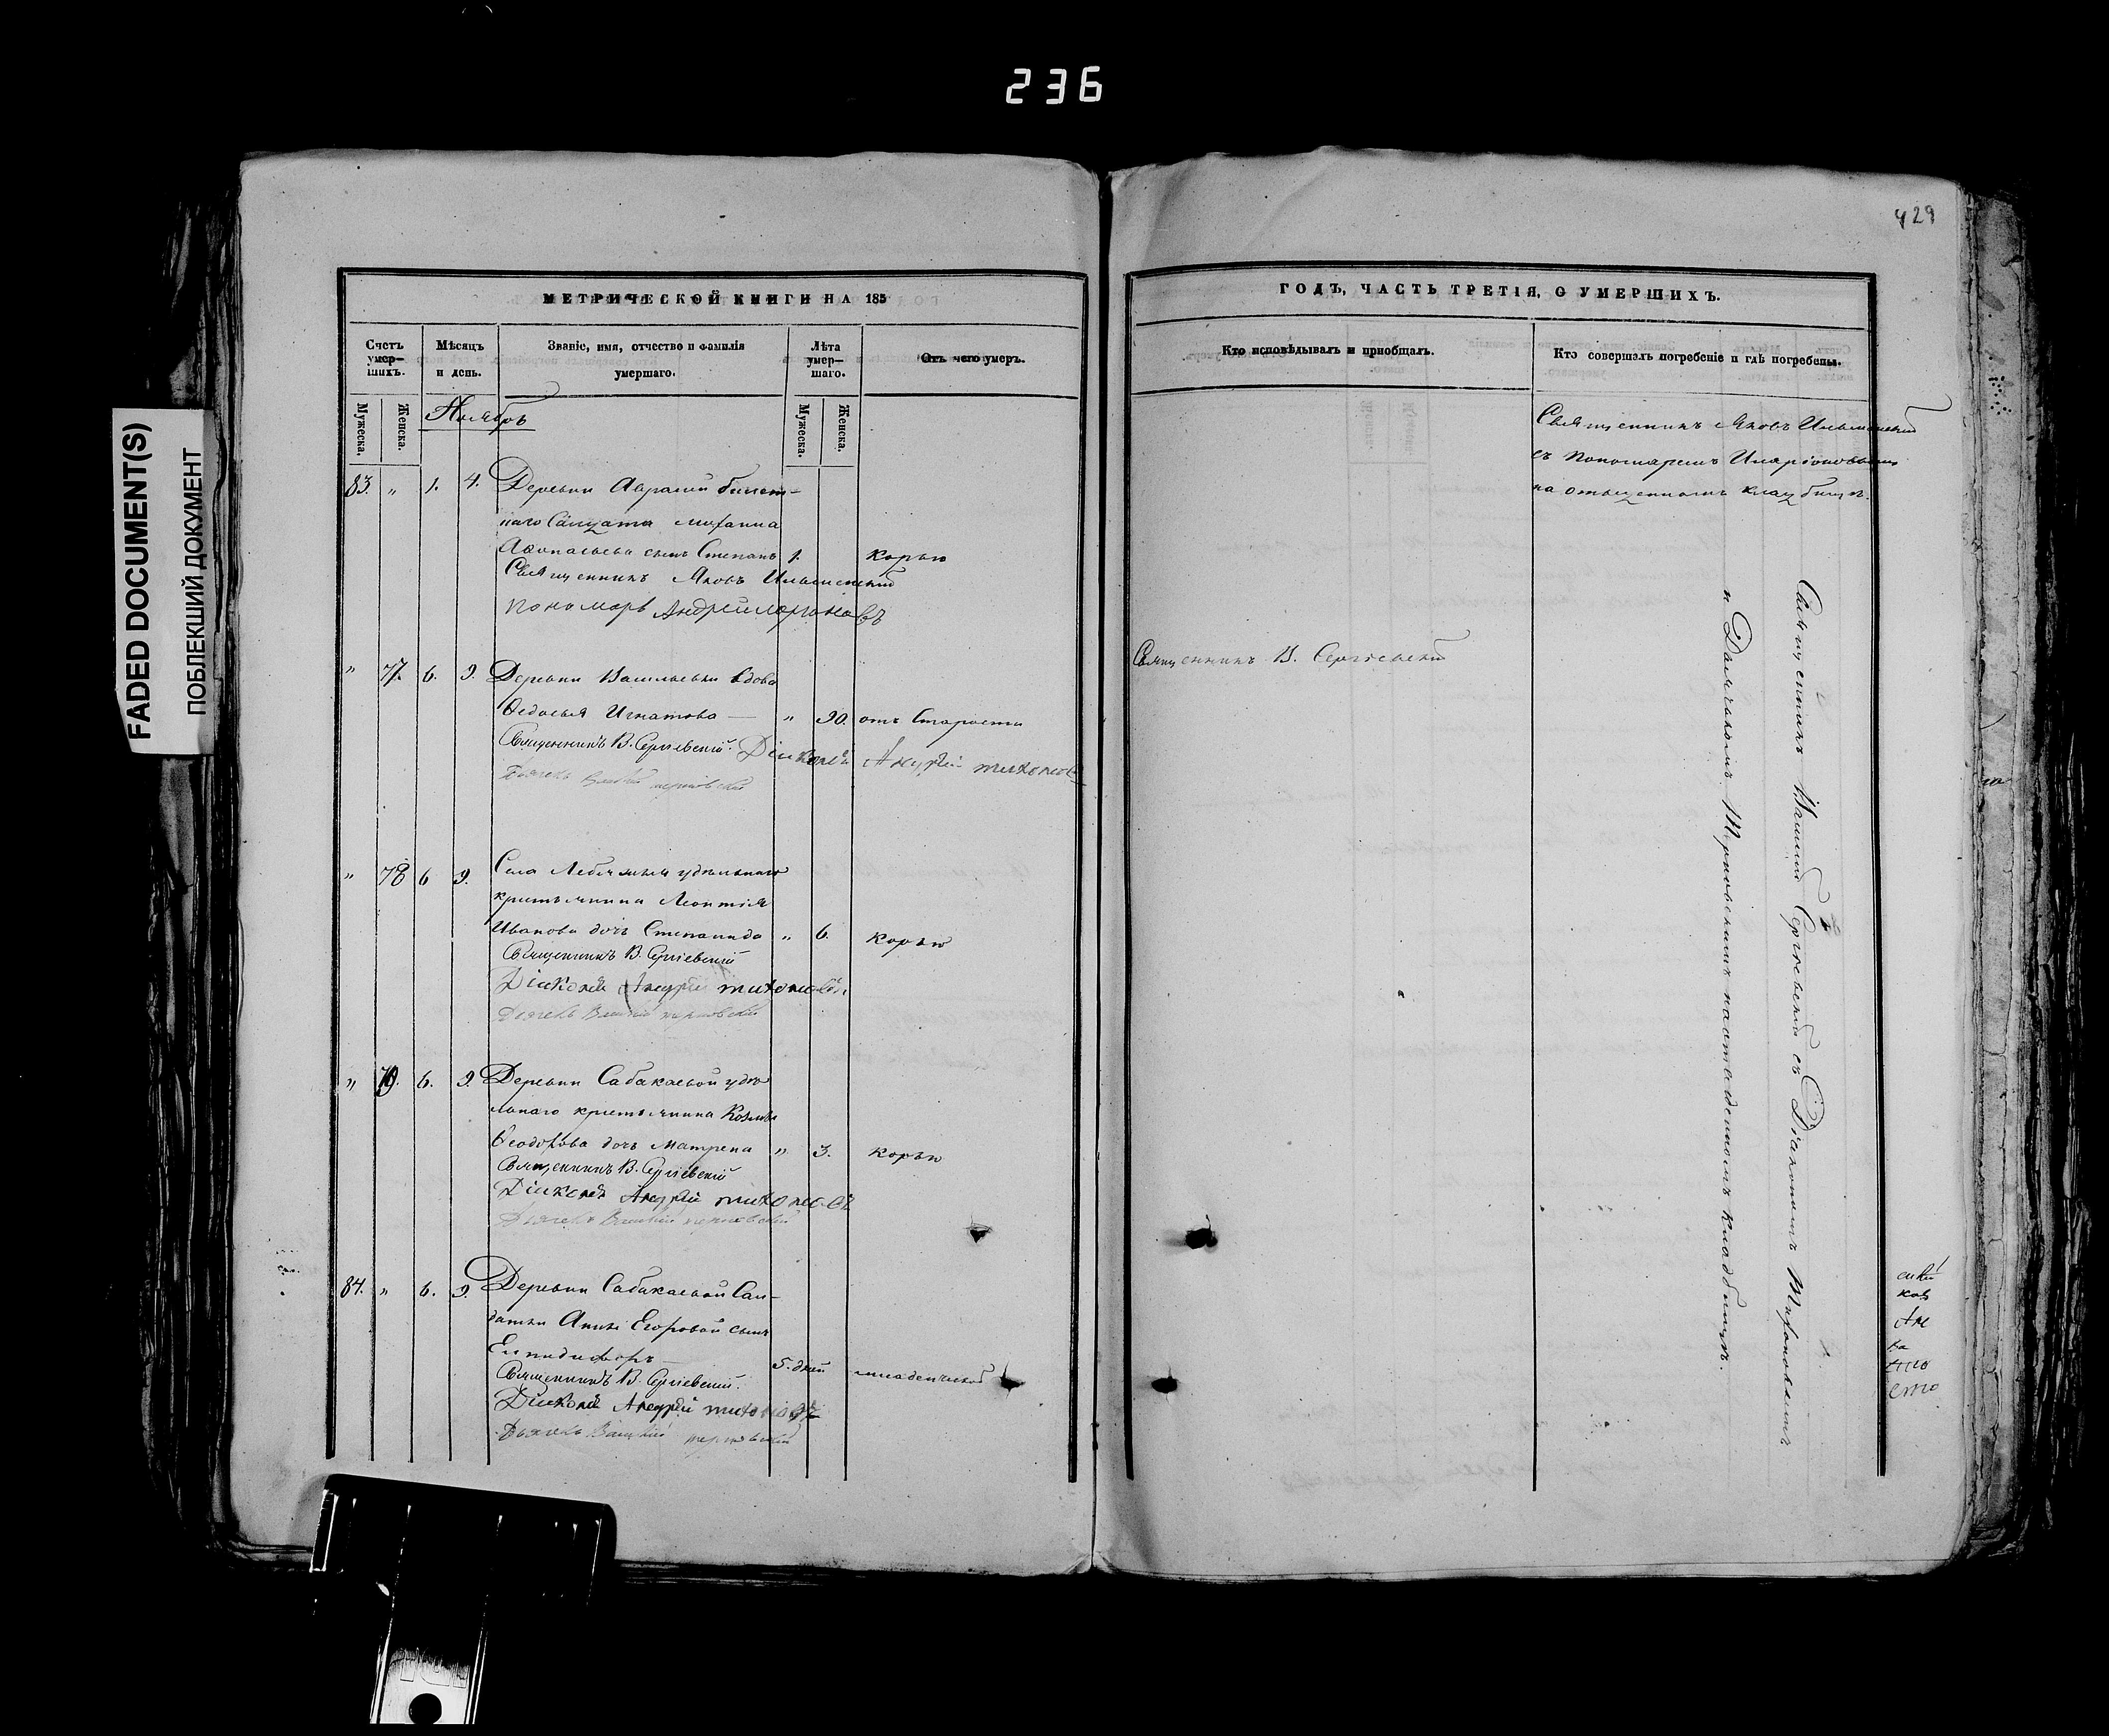 236
429
FADED DOCUMENT(S)
ПОБЛЕКШИЙ ДОКУМЕНТ
МЕТРИЧЕСКОЙ КНИГИ НА 185
Счетъ умер—шихъ.
Мѣсяцъ и день.
Званіе, имя, отчество и фамилія умершаго.
Лѣта умер—шаго.
Отъ чего умеръ.
Мужеска.
Женска.
Мужеска.
Женска.
Ноябрь
83. " 1. 4. Деревни Авралей билет-
наго Салдата
Афонасьева сынъ Степанъ 1. корью
Священникъ Яковъ Ильминский
пономарь Андрей
" 77. 6. 9. Деревни Васильевки вдова
Федосья Игнатова — " 90. отъ Старости
Священникъ В. Сергіевскій. Діаконъ Андрей тихоновъ
Дьячекъ
" 78 6 9. Села удѣльнаго
крестьянина Леонтія
Иванова дочь Степанида " 6. корью
Священникъ В. Сергіевскій
Діаконъ Андрей тихоновъ
Дьячекъ
" 79. 6. 9. Деревни Сабакаевой удѣ
льнаго крестьянина Козмы
Феодорова дочь Матрена " 3. корью
Священникъ В. Сергіевскій
Діаконъ Андрей тихоновъ
Дьячекъ
84. " 6. 9. Деревни Сабакаевой Сал-
датки Анны Егоровой сынъ
Елпидифоръ —
5. дней младенческой
Священникъ В. Сергіевскій.
Діаконъ Андрей тихоновъ
Дьячекъ
ГОДЪ, ЧАСТЬ ТРЕТІЯ, О УМЕРШИХЪ.
Кто исповѣдывалъ и пріобщалъ.
Кто совершалъ погребеніе и гдѣ погребены.
Священникъ Яковъ Ильминский
съ Пономаремъ Иларіоновымъ
на отведенномъ кладбищѣ.
Священникъ В. Сергіевскій
Священникъ Василій Сергіевскій съ Діакономъ Тихоновымъ
и Дьячкомъ на отведенномъ кладбищѣ.